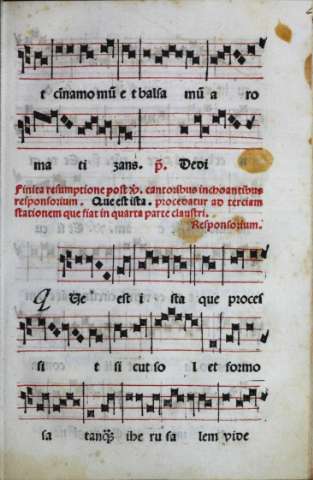 t cinamomū e t balsa mū a ro
ma ti zans. p̄. Dedi
Finita resumptione post ℣. cantoribus inchoantibus
responsorium. Que est ista. procedatur ad terciam
stationem que fiat in quarta parte claustri.
Responsorium.
Que est i sta que proces
si t si cut so l et formo
sa tanq̄ ihe ru sa lem vide